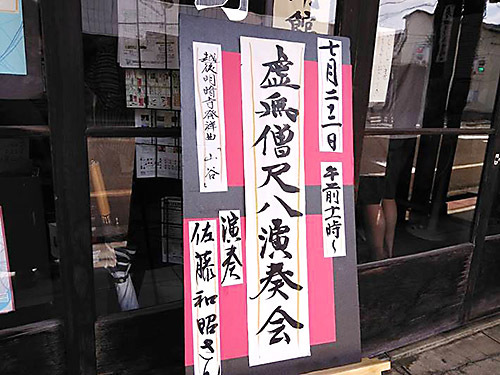 七月二二日 午前十一時～
虚無僧尺八演奏会
越後明暗寺発祥曲 山谷
演奏
佐藤和昭さん
館